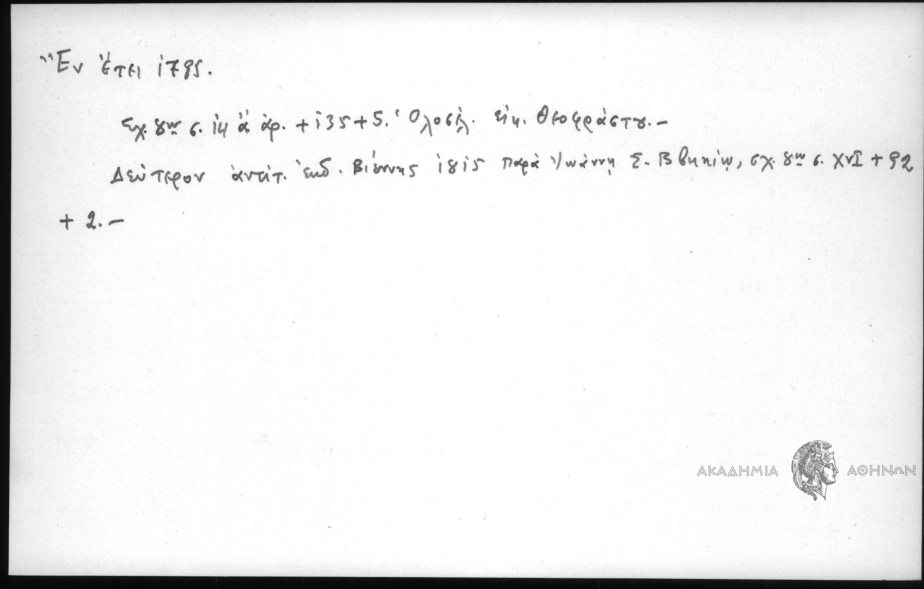 Ἐν ἔτει 1795.
Σχ. 8ον σ. 14 ἄ ἀρ. + 135 + 5. Ὁλοσέλ. εἰκ. Θεοφράστου. —
Δεύτερον ἀντίτ. ἐκδ. Βιέννης 1815 παρὰ Ἰωάννῃ Σ. , σχ. 8ον σ. XVI + 92
+ 2. —
ΑΚΑΔΗΜΙΑ ΑΘΗΝΩΝ